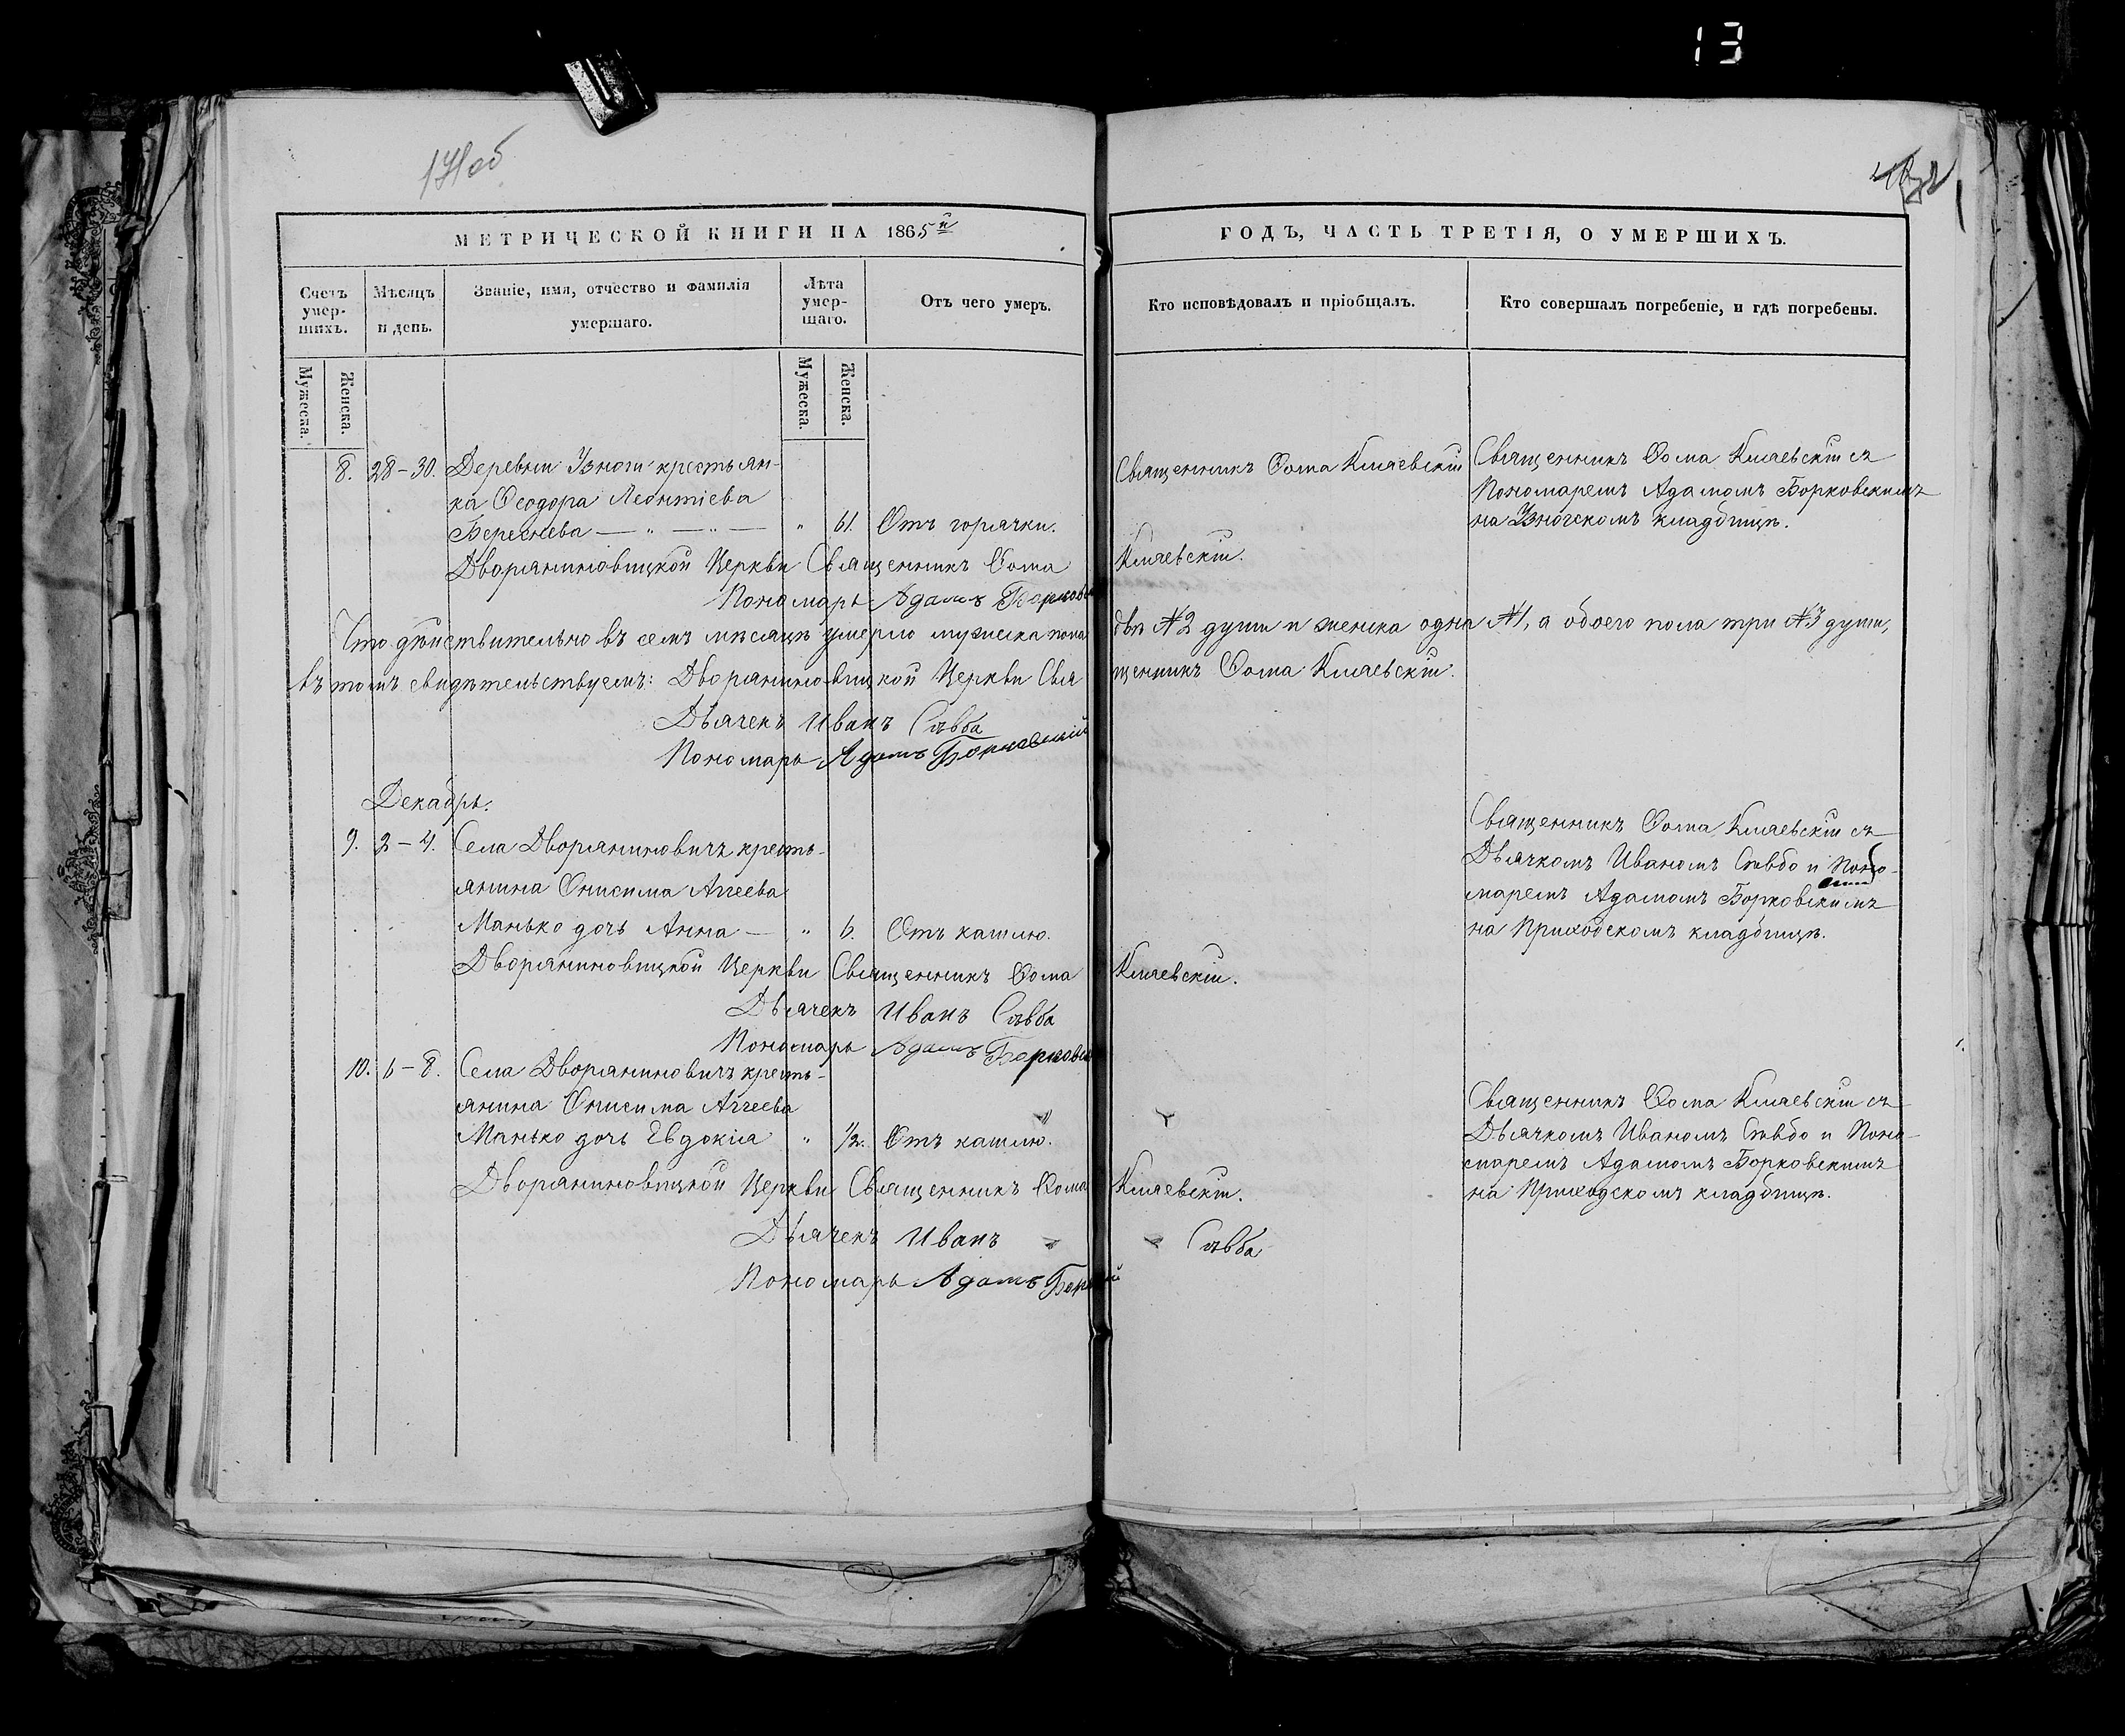 13
171об
МЕТРИЧЕСКОЙ КНИГИ НА 1865й
ГОДЪ, ЧАСТЬ ТРЕТІЯ, О УМЕРШИХЪ.
Счетъ умер-шихъ.
Мѣсяцъ и день.
Званіе, имя, отчество и фамилія умершаго.
Лѣта умер-шаго.
Отъ чего умеръ.
Кто исповѣдовалъ и пріобщалъ.
Кто совершалъ погребеніе, и гдѣ погребены.
Мужеска.
Женска.
Мужеска.
Женска.
8. 28-30. Деревни Узноги крестьян-
ка Ѳеодора Леонтіева
Береснева — „ — „ — „ 61. Отъ горячки.
Священникъ Ѳома Кмаевскій
Священникъ Ѳома Кмаевскій съ
Пономаремъ Адамомъ Борковскимъ
на Узногскомъ кладбищѣ.
Дворяниновицкой Церкви Священникъ Ѳома Кмаевскій.
Пономарь Адамъ Борковс
Что дѣйствительно въ семъ мѣсяцѣ умерло мужеска пола двѣ №2 души и женска одна №1, а обоего пола три №3 души,
въ томъ свидѣтельствуемъ: Дворяниновицкой Церкви Священникъ Ѳома Кмаевскій.
Дьячекъ Иванъ Слвба
Пономарь Адамъ Борковскій
Декабрь.
9. 2-4. Села Дворяниновичъ кресть-
янина Онисима Аггеева
Манько дочь Анна — „ 6. Отъ кашлю.
Священникъ Ѳома Кмаевскій съ
Дьячкомъ Иваномъ Слвбо и Поно-
маремъ Адамомъ Борковскимъ
на Приходскомъ кладбищѣ.
Дворяниновицкой Церкви Священникъ Ѳома Кмаевскій.
Дьячекъ Иванъ Слвба
Пономарь Адамъ Борковс
10. 6-8. Села Дворяниновичъ кресть-
янина Онисима Аггеева
Манько дочь Евдокія „ 1/2. Отъ кашлю.
Священникъ Ѳома Кмаевскій съ
Дьячкомъ Иваномъ Слвбо и Поно-
маремъ Адамомъ Борковскимъ
на Приходскомъ кладбищѣ.
Дворяниновицкой Церкви Священникъ Ѳома Кмаевскій.
Дьячекъ Иванъ Слвба
Пономарь Адамъ